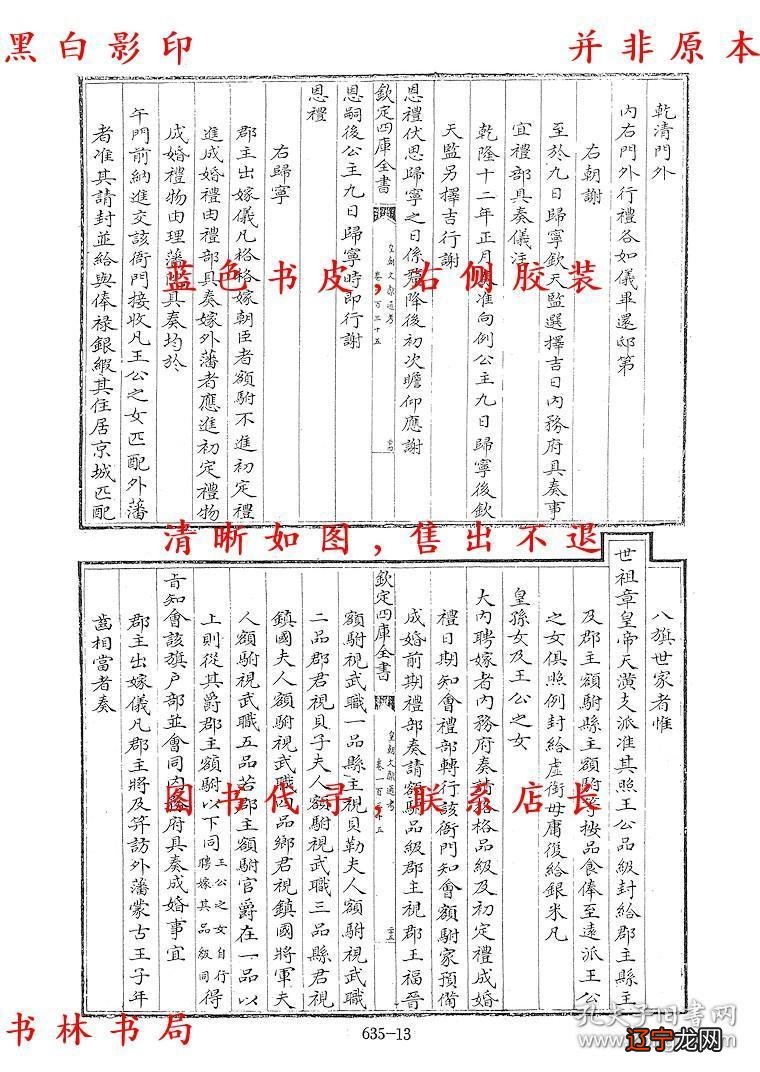 黑白影印
并非原本
乾清門外
内右門外行禮各如儀畢還邸第
右朝謝
至於九日歸寧欽天監選擇吉日内務府具奏事
宜禮部具奏儀注
乾隆十二年正月准向例公主九日歸寧後欽
天監另擇吉行謝
恩禮伏思歸寧之日係釐降後初次瞻仰應謝
欽定四庫全書
皇朝文獻通考
卷一百五十五
恩嗣後公主九日歸寧時即行謝
恩禮
右歸寧
郡主出嫁儀凡格格嫁朝臣者額駙不進初定禮
進成婚禮由禮部具奏嫁外藩者應進初定禮物
成婚禮物由理藩院具奏均於
午門前納進交該衙門接收凡王公之女匹配外藩
者准其請封並給與俸祿銀緞其住居京城匹配
蓝色书皮,右侧胶装
清晰如图,售出不退
八旗世家者惟
世祖章皇帝天潢支派准其照王公品級封給郡主縣主
及郡主額駙縣主額駙等按品食俸至遠派王公
之女俱照例封給虚銜毋庸後給銀米凡
皇孫女及王公之女
大内聘嫁者内務府奏請格格品級及初定禮成婚
禮日期知會禮部轉行該衙門知會額駙家預備
成婚前期禮部奏請額駙品級郡主視郡王福晉
欽定四庫全書
皇朝文獻通考
卷一百五十五
額駙視武職一品縣主視貝勒夫人額駙視武職
二品郡君視貝子夫人額駙視武職三品縣君視
鎮國夫人額駙視武職四品鄉君視鎮國將軍夫
人額駙視武職五品若郡主額駙官爵在一品以
上則從其爵郡主額駙以下同王公之女自行聘嫁其品級同得
旨知會該旗戸部並會同内務府具奏成婚事宜
郡主出嫁儀凡郡主將及笄訪外藩蒙古王子年
齒相當者奏
图书代寻,联系店长
635-13
书林书局
孔夫子旧书网
辽宁龙网